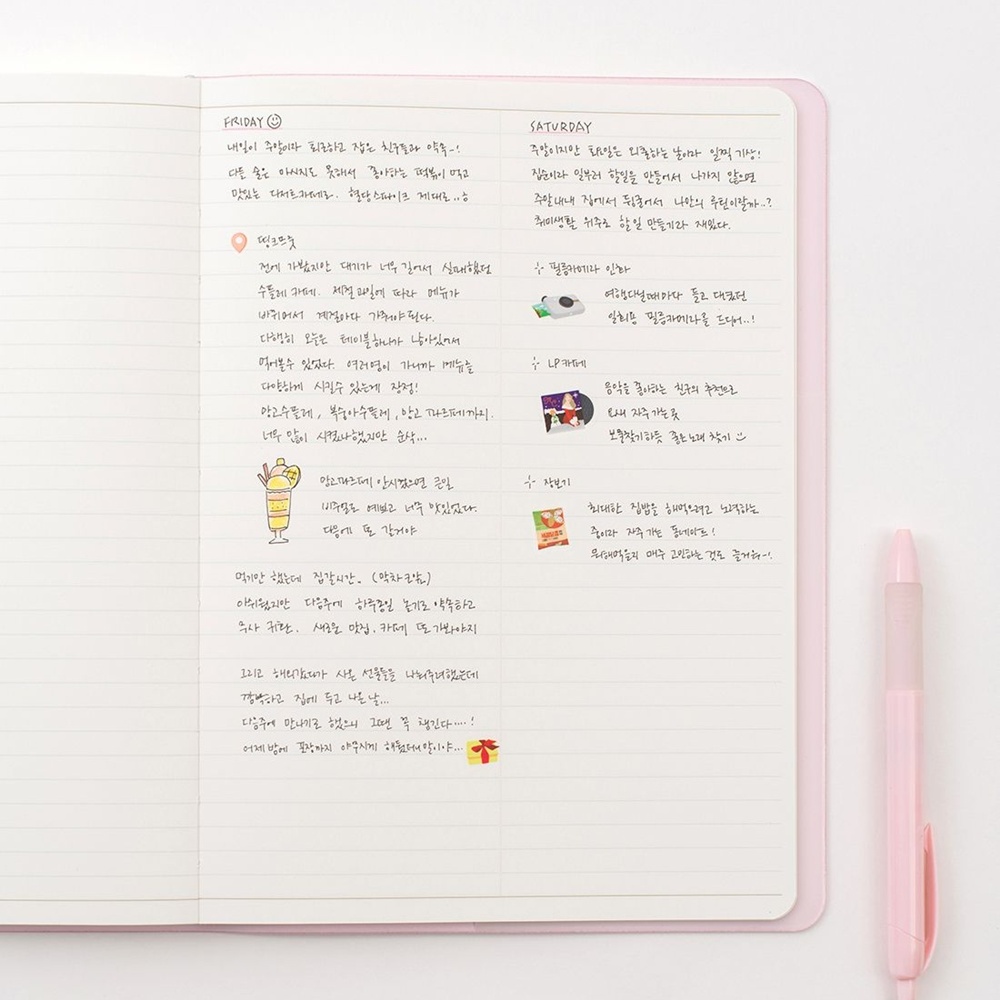 FRIDAY
내일이 주말이라 퇴근하고 잡은 친구들과 약속~!
다들 술은 마시지도 못해서 좋아하는 떡볶이 먹고
맛있는 디저트카페로. 혈당스파이크 제대로..ㅎ
띵크프룻
전에 가봤지만 대기가 너무 길어서 실패했던
수플레 카페. 제철과일에 따라 메뉴가
바뀌어서 계절마다 가줘야된다.
다행히 오늘은 테이블하나가 남아있어서
먹어볼수 있었다. 여러명이 가니까 메뉴를
다양하게 시킬수 있는게 장점!
망고수플레, 복숭아수플레, 망고 파르페까지.
너무 많이 시켰나했지만 순삭...
망고파르페 안시켰으면 큰일
비주얼도 예쁘고 너무 맛있었다.
다음에 또 갈거야
먹기만 했는데 집갈시간. (막차ㅋㅋ)
아쉬웠지만 다음주에 하루종일 놀기로 약속하고
무사 귀환. 새로운 맛집, 카페 또 가봐야지
그리고 해외갔다가 사온 선물들을 나눠주려했는데
깜빡하고 집에 두고 나온 날...
다음주에 만나기로 했으니 그땐 꼭 챙긴다....!
어제 밤에 포장까지 야무지게 해뒀더니 말이야...
SATURDAY
주말이지만 토요일은 외출하는 날이라 일찍 기상!
집순이라 일부러 할일을 만들어서 나가지 않으면
주말내내 집에서 뒹굴어서 나만의 루틴이랄까..?
취미생활 위주로 할 일 만들기라 재밌다.
필름카메라 인화
여행다닐때마다 들고 다녔던
일회용 필름카메라를 드디어..!
LP카페
음악을 좋아하는 친구의 추천으로
요새 자주 가는 곳
보물찾기하듯 좋은노래 찾기
장보기
최대한 집밥을 해먹으려고 노력하는
중이라 자주 가는 동네마트!
뭐해먹을지 매주 고민하는 것도 즐거워~!